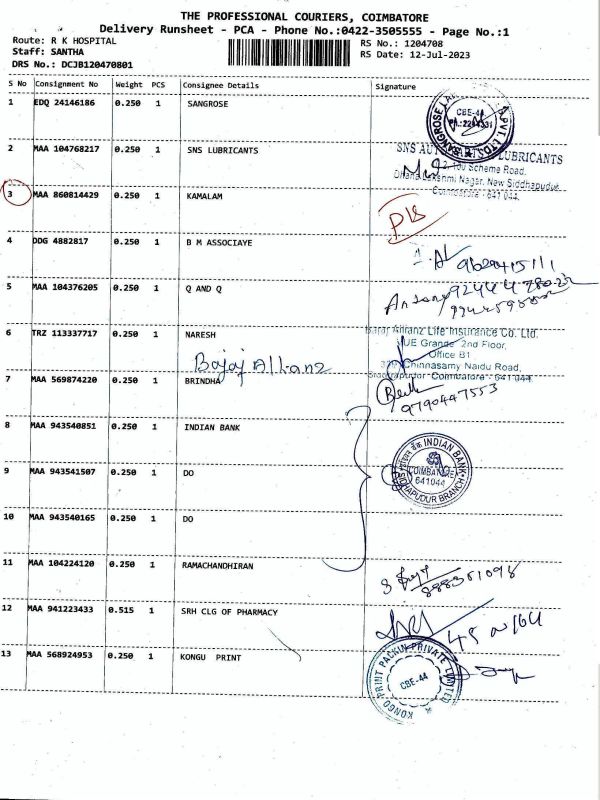 THE PROFESSIONAL COURIERS, COIMBATORE
Delivery Runsheet - PCA - Phone No.:0422-3505555 - Page No.:1
Route: R K HOSPITAL
Staff: SANTHA
DRS No.: DCJB120470801
RS No.: 1204708
RS Date: 12-Jul-2023
S No Consignment No Weight PCS Consignee Details Signature
1 EDQ 24146186 0.250 1 SANGROSE
CBE-44
2 MAA 104768217 0.250 1 SNS LUBRICANTS
LUBRICANTS
Scheme Road,
Nagar, New Siddhapudur,
Coimbatore - 641 044.
3 MAA 860814429 0.250 1 KAMALAM
4 DDG 4882817 0.250 1 B M ASSOCIAYE
5 MAA 104376205 0.250 1 Q AND Q
6 TRZ 113337717 0.250 1 NARESH
Bajaj Allianz Life Insurance Co. Ltd.
UE Grande 2nd Floor,
Office B1
Chinnasamy Naidu Road,
Coimbatore - 641 044.
Bajaj Allianz
7 MAA 569874220 0.250 1 BRINDHA
9790447553
8 MAA 943540851 0.250 1 INDIAN BANK
INDIAN BANK
COIMBATORE
641044
SIDHAPUDUR BRANCH
9 MAA 943541507 0.250 1 DO
10 MAA 943540165 0.250 1 DO
11 MAA 104224120 0.250 1 RAMACHANDHIRAN
12 MAA 941223433 0.515 1 SRH CLG OF PHARMACY
13 MAA 568924953 0.250 1 KONGU PRINT
KONGO PRINT PACKIN PRIVATE LIMITED
CBE-44